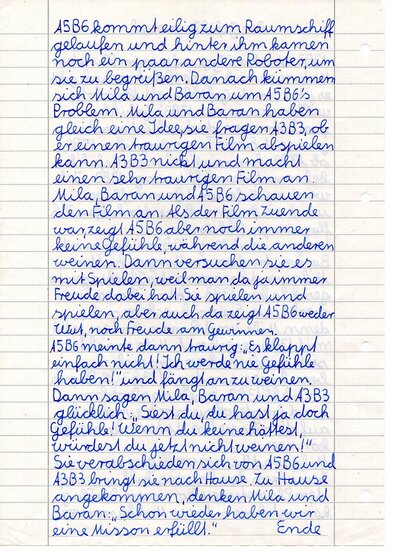 A5B6 kommt eilig zum Raumschiff
gelaufen und hinter ihm kamen
noch ein paar andere Roboter, um
sie zu begreißen. Danach kümmern
sich Mila und Baran um A5B6's
Problem. Mila und Baran haben
gleich eine Idee, sie fragen A3B3, ob
er einen traurigen Film abspielen
kann. A3B3 nickt und macht
einen sehr traurigen Film an.
Mila, Baran und A5B6 schauen
den Film an. Als der Film zuende
war, zeigt A5B6 aber noch immer
keine Gefühle, während die anderen
weinen. Dann versuchen sie es
mit Spielen, weil man da ja immer
Freude dabei hat. Sie spielen und
spielen, aber auch da zeigt A5B6 weder
Wut, noch Freude am Gewinnen.
A5B6 meinte dann traurig: „Es klappt
einfach nicht! Ich werde nie Gefühle
haben!" und fängt an zu weinen.
Dann sagen Mila, Baran und A3B3
glücklich: „Siest du, du hast ja doch
Gefühle! Wenn du keine hättest,
würdest du jetzt nicht weinen!"
Sie verabschieden sich von A5B6 und
A3B3 bringt sie nach Hause. Zu Hause
angekommen, denken Mila und
Baran: „Schon wieder haben wir
eine Misson erfüllt." Ende